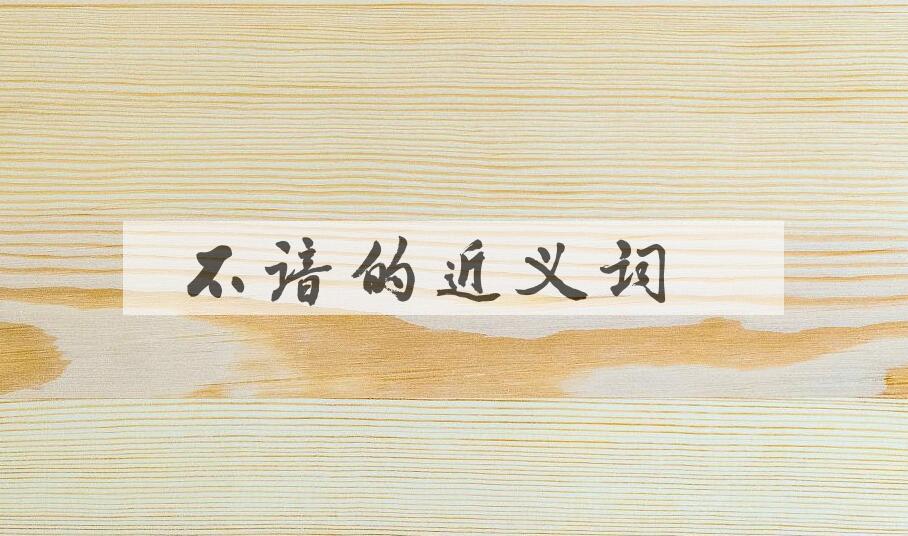 不谙的近义词